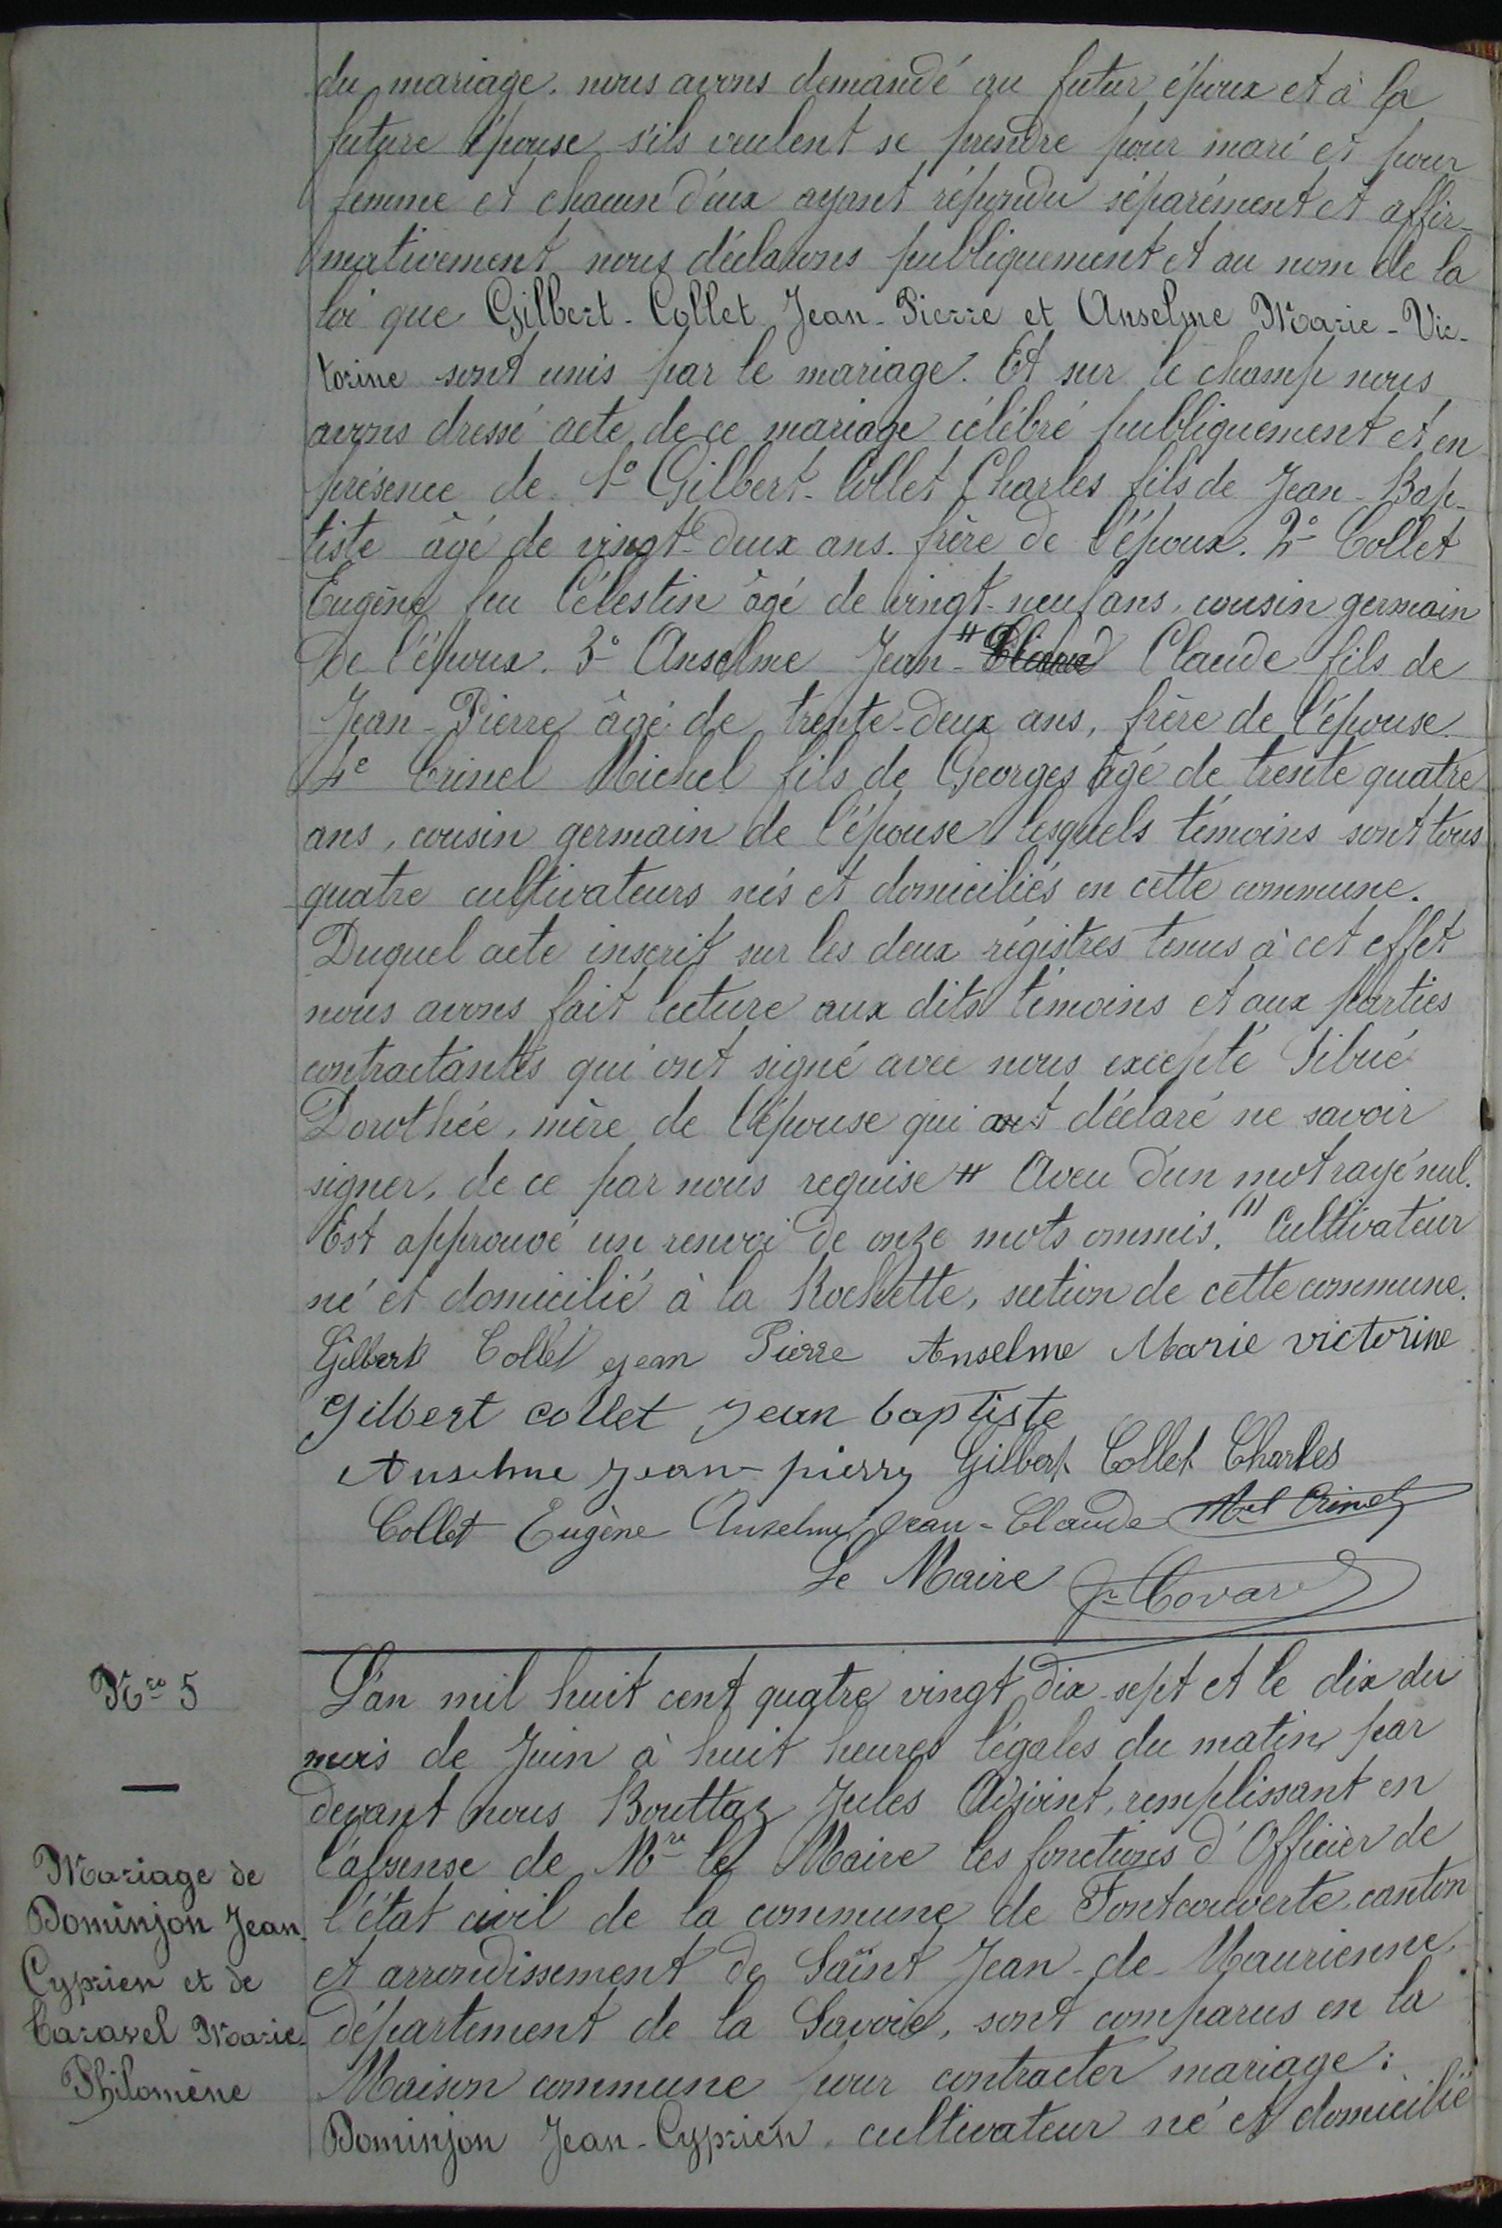 du mariage. nous avons demandé au futur époux et à la
future épouse s'ils veulent se prendre pour mari et pour
femme et chacun d'eux ayant répondu séparément et affir-
mativement nous déclarons publiquement et au nom de la
loi que Gilbert-Collet Jean-Pierre et Anselme Marie-Vic-
torine sont unis par le mariage. Et sur le champ nous
avons dressé acte de ce mariage célébré publiquement et en
présence de 1° Gilbert-Collet Charles fils de Jean-Bap-
tiste âgé de vingt-deux ans. frère de l'époux. 2° Collet
Eugène feu Célestin âgé de vingt-neuf ans, cousin germain
de l'époux. 3° Anselme Jean-# Claude fils de
Jean-Pierre âgé de trente-deux ans, frère de l'épouse.
4° Crinel Michel fils de Georges âgé de trente quatre
ans, cousin germain de l'épouse lesquels témoins sont tous
quatre cultivateurs nés et domiciliés en cette commune.
Duquel acte inscrit sur les deux régistres tenus à cet effet
nous avons fait lecture aux dits témoins et aux parties
contractantes qui ont signé avec nous excepté Sibué
Dorothée, mère de l'épouse qui a déclaré ne savoir
signer, de ce par nous requise # Aveu d'un mot rayé nul.
Est approuvé un renvoi de onze mots ommis. (1) Cultivateur
né et domicilié à la Rochette, section de cette commune.
Gilbert Collet jean Pierre Anselme Marie victorine
Gilbert collet jean baptiste
Anselme jean-pierre Gilbert Collet Charles
Collet Eugène Anselme Jean-Claude Mel Crinel
Le Maire
N.ro 5
Mariage de
Dominjon Jean-
Cyprien et de
Caravel Marie-
Philomène
L'an mil huit cent quatre vingt dix-sept et le dix du
mois de Juin à huit heures légales du matin par
devant nous Bouttaz Jules Adjoint, remplissant en
l'absense de Mr le Maire les fonctions d'Officier de
l'état civil de la commune de Fontcouverte, canton
et arrondissement de Saint Jean-de-Maurienne,
département de la Savoie, sont comparus en la
Maison commune pour contracter mariage :
Dominjon Jean-Cyprien. cultivateur né et domicilié